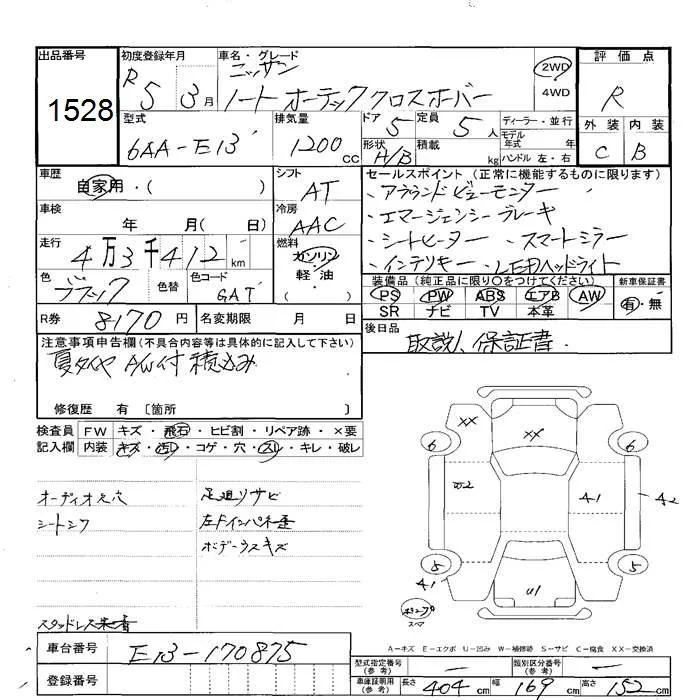 出品番号 初度登録年月 車名・グレード 評価点
1528 R5 3月 ニッサン
ノート オーテッククロスオーバー
2WD
4WD
R
型式 排気量 ドア 定員 ディーラー・並行 外装 内装
6AA-E13 1200cc 5 5人 モデル年式 年 C B
形状 積載
H/B kg ハンドル 左・右
車歴 シフト セールスポイント (正常に機能するものに限ります)
自家用・( ) AT ・アラウンドビューモニター
車検 冷房 ・エマージェンシーブレーキ
年 月( 日) AAC ・シートヒーター ・スマートミラー
走行 燃料 ・インテリキー ・LEDヘッドライト
4万3千412km ガソリン
軽油
色 色替 色コード
ブラック GAT ( )
装備品 (純正品に限り○をつけてください) 新車保証書
PS PW ABS エアB AW 有・無
SR ナビ TV 本革
R券 8170円 名変期限 月 日 後日品
取説、保証書
注意事項申告欄(不具合内容等は具体的に記入して下さい)
夏タイヤ A/W付 積込み
修復歴 有 〔箇所 〕
検査員 FW キズ・飛石・ヒビ割・リペア跡・×要
記入欄 内装 キズ・汚れ・コゲ・穴・スレ・キレ・破レ
オーディオ欠穴 足廻リサビ
シートシワ 左Fインパネ歪
ボデーウスキズ
スタッドレス装着
XX XX 6 6
W2 A1 A2
5 5 A1 U1
スペア
A-キズ E-エクボ U-凹み W-補修跡 S-サビ C-腐食 XX-交換済
車台番号 E13-170875
登録番号
型式指定番号(参考) — 類別区分番号(参考) —
車庫証明用(参考) 長さ 404cm 幅 169cm 高さ 152cm